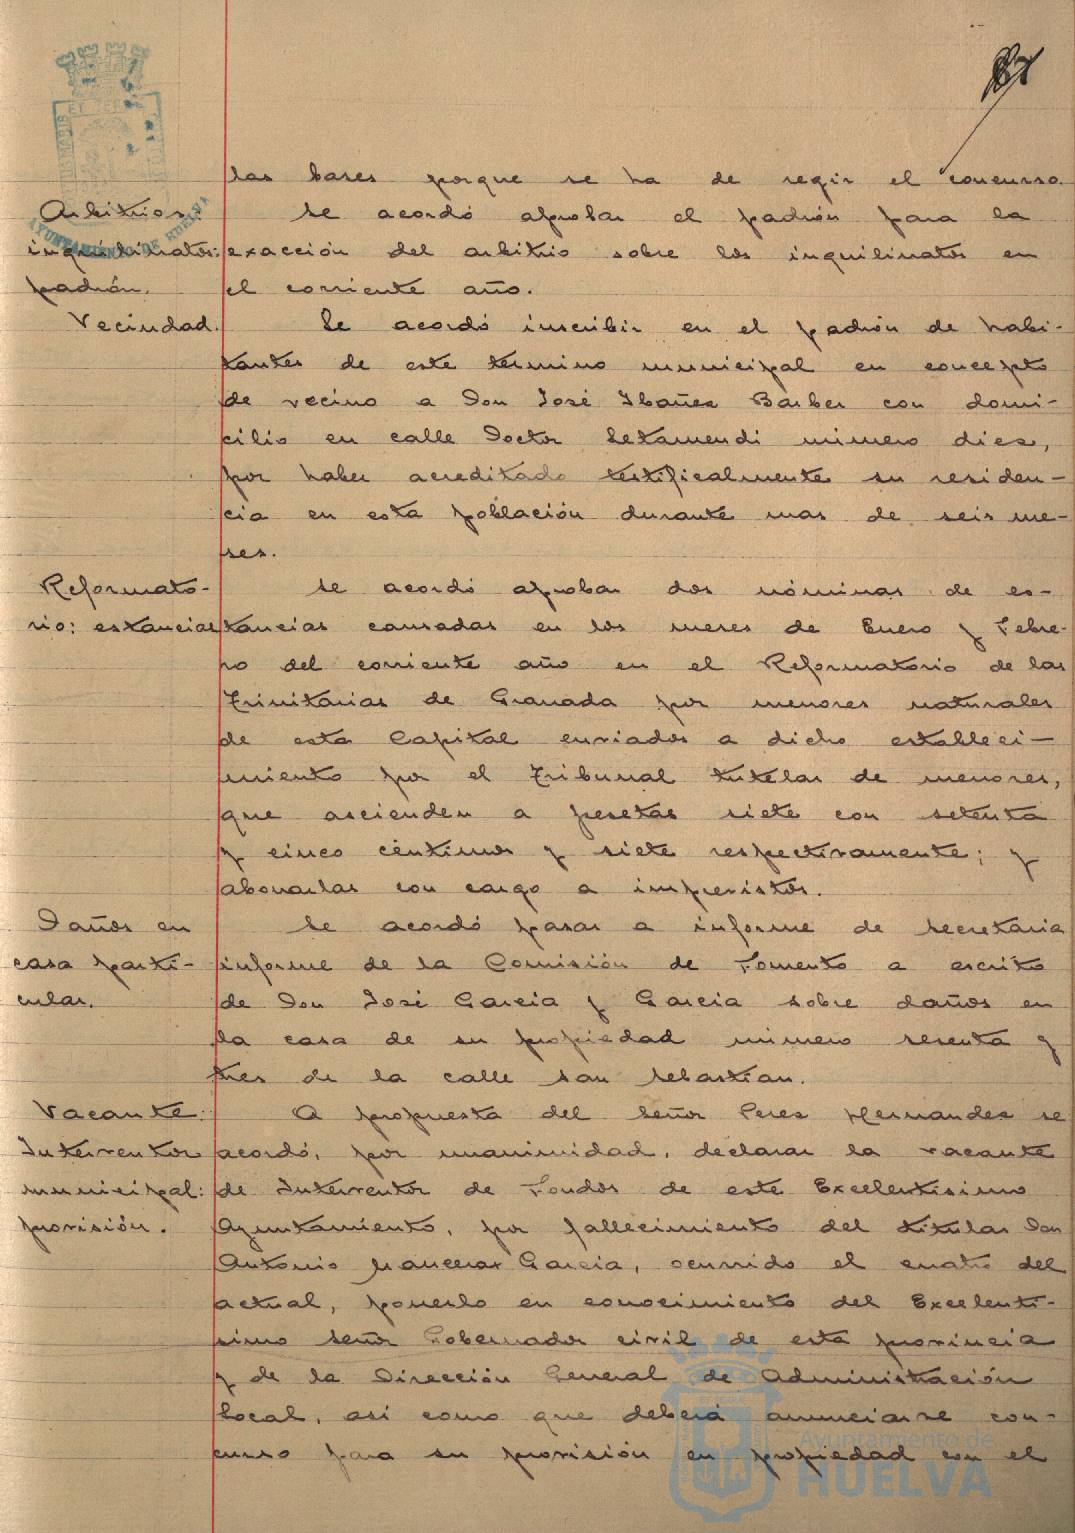 87
las bases porque se ha de regir el concurso.
Arbitrios:
inquilinatos:
padrón.
Se acordó aprobar el padrón para la
exacción del arbitrio sobre los inquilinatos en
el corriente año.
Vecindad.
Se acordó inscribir en el padrón de habi-
tantes de este termino municipal en concepto
de vecino a Don José Ibañez Barber con domi-
cilio en calle Doctor Letamendi número diez,
por haber acreditado testificalmente su residen-
cia en esta población durante mas de seis me-
ses.
Reformato-
rio: estancias
Se acordó aprobar dos nóminas de es-
tancias causadas en los meses de Enero y Febre-
ro del corriente año en el Reformatorio de las
Trinitarias de Granada por menores naturales
de esta Capital enviados a dicho estableci-
miento por el Tribunal tutelar de menores,
que ascienden a pesetas siete con setenta
y cinco céntimos y siete respectivamente; y
abonarlas con cargo a imprevistos.
Daños en
casa parti-
cular.
Se acordó pasar a informe de Secretaria
informe de la Comisión de Fomento a escrito
de Don José Garcia y Garcia sobre daños en
la casa de su propiedad número sesenta y
tres de la calle San Sebastian.
Vacante:
Interventor
municipal:
provisión.
A propuesta del Señor Perez Hernandez se
acordó, por unanimidad, declarar la vacante
de Interventor de Fondos de este Excelentisimo
Ayuntamiento, por fallecimiento del titular Don
Antonio Garcia, ocurrido el cuatro del
actual, ponerlo en conocimiento del Excelenti-
simo Señor Gobernador civil de esta provincia
y de la Dirección General de Administración
Local, asi como que deberá anunciarse con-
curso para su provisión en propiedad con el
AYUNTAMIENTO DE HUELVA
Ayuntamiento de
HUELVA